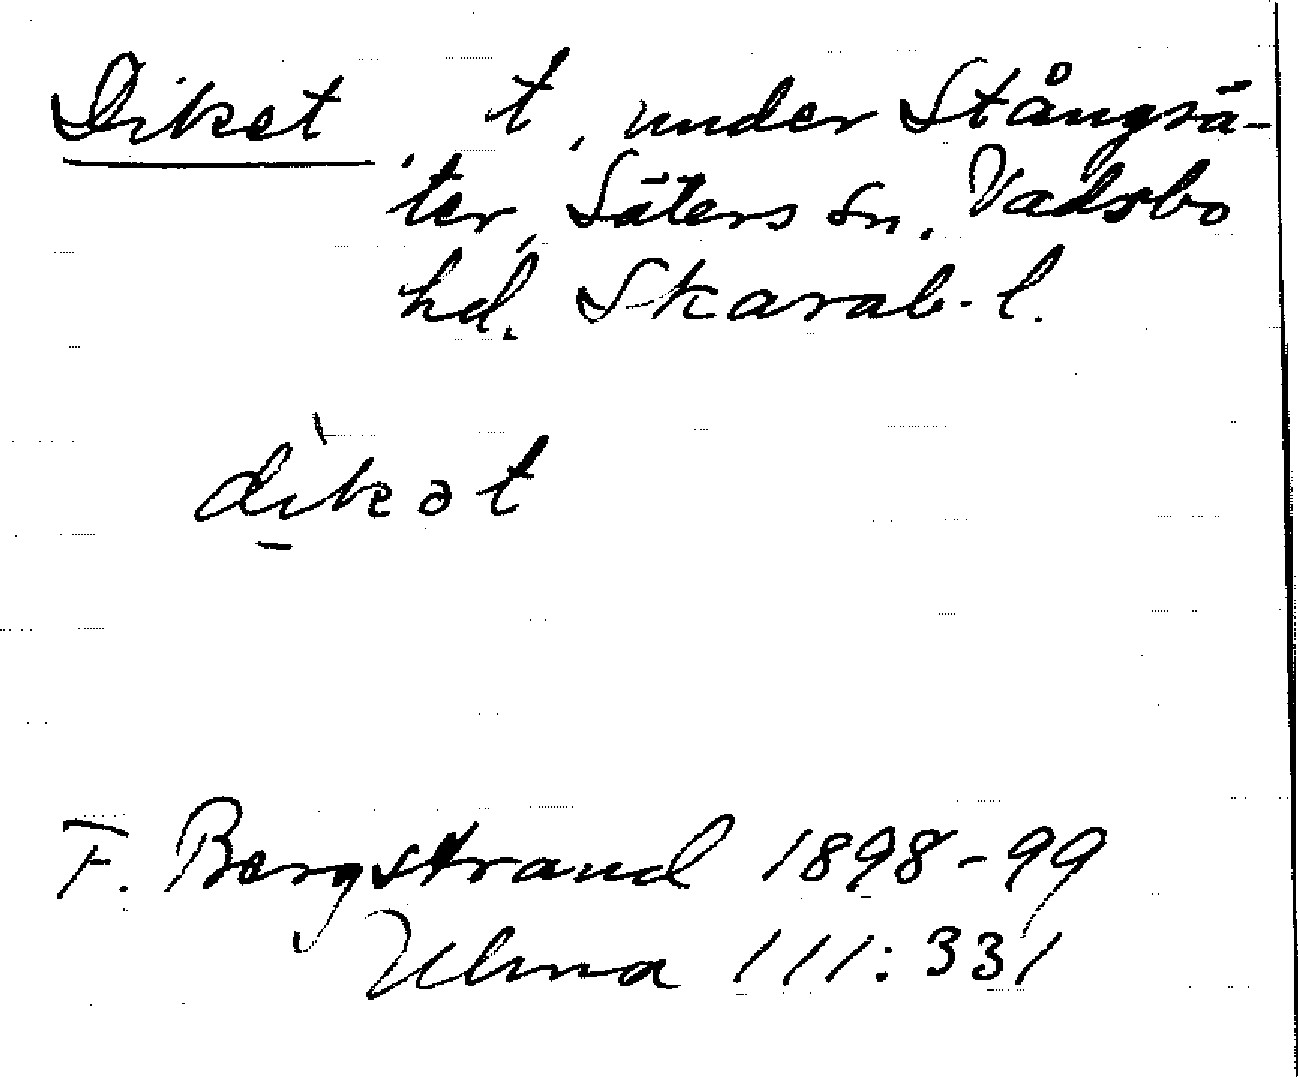 Diket t. under Stångsä-
ter, Säters sn. Vadsbo
hd. Skarab. l.
dìkət
F. Bergstrand 1898-99
Ulma 111:331